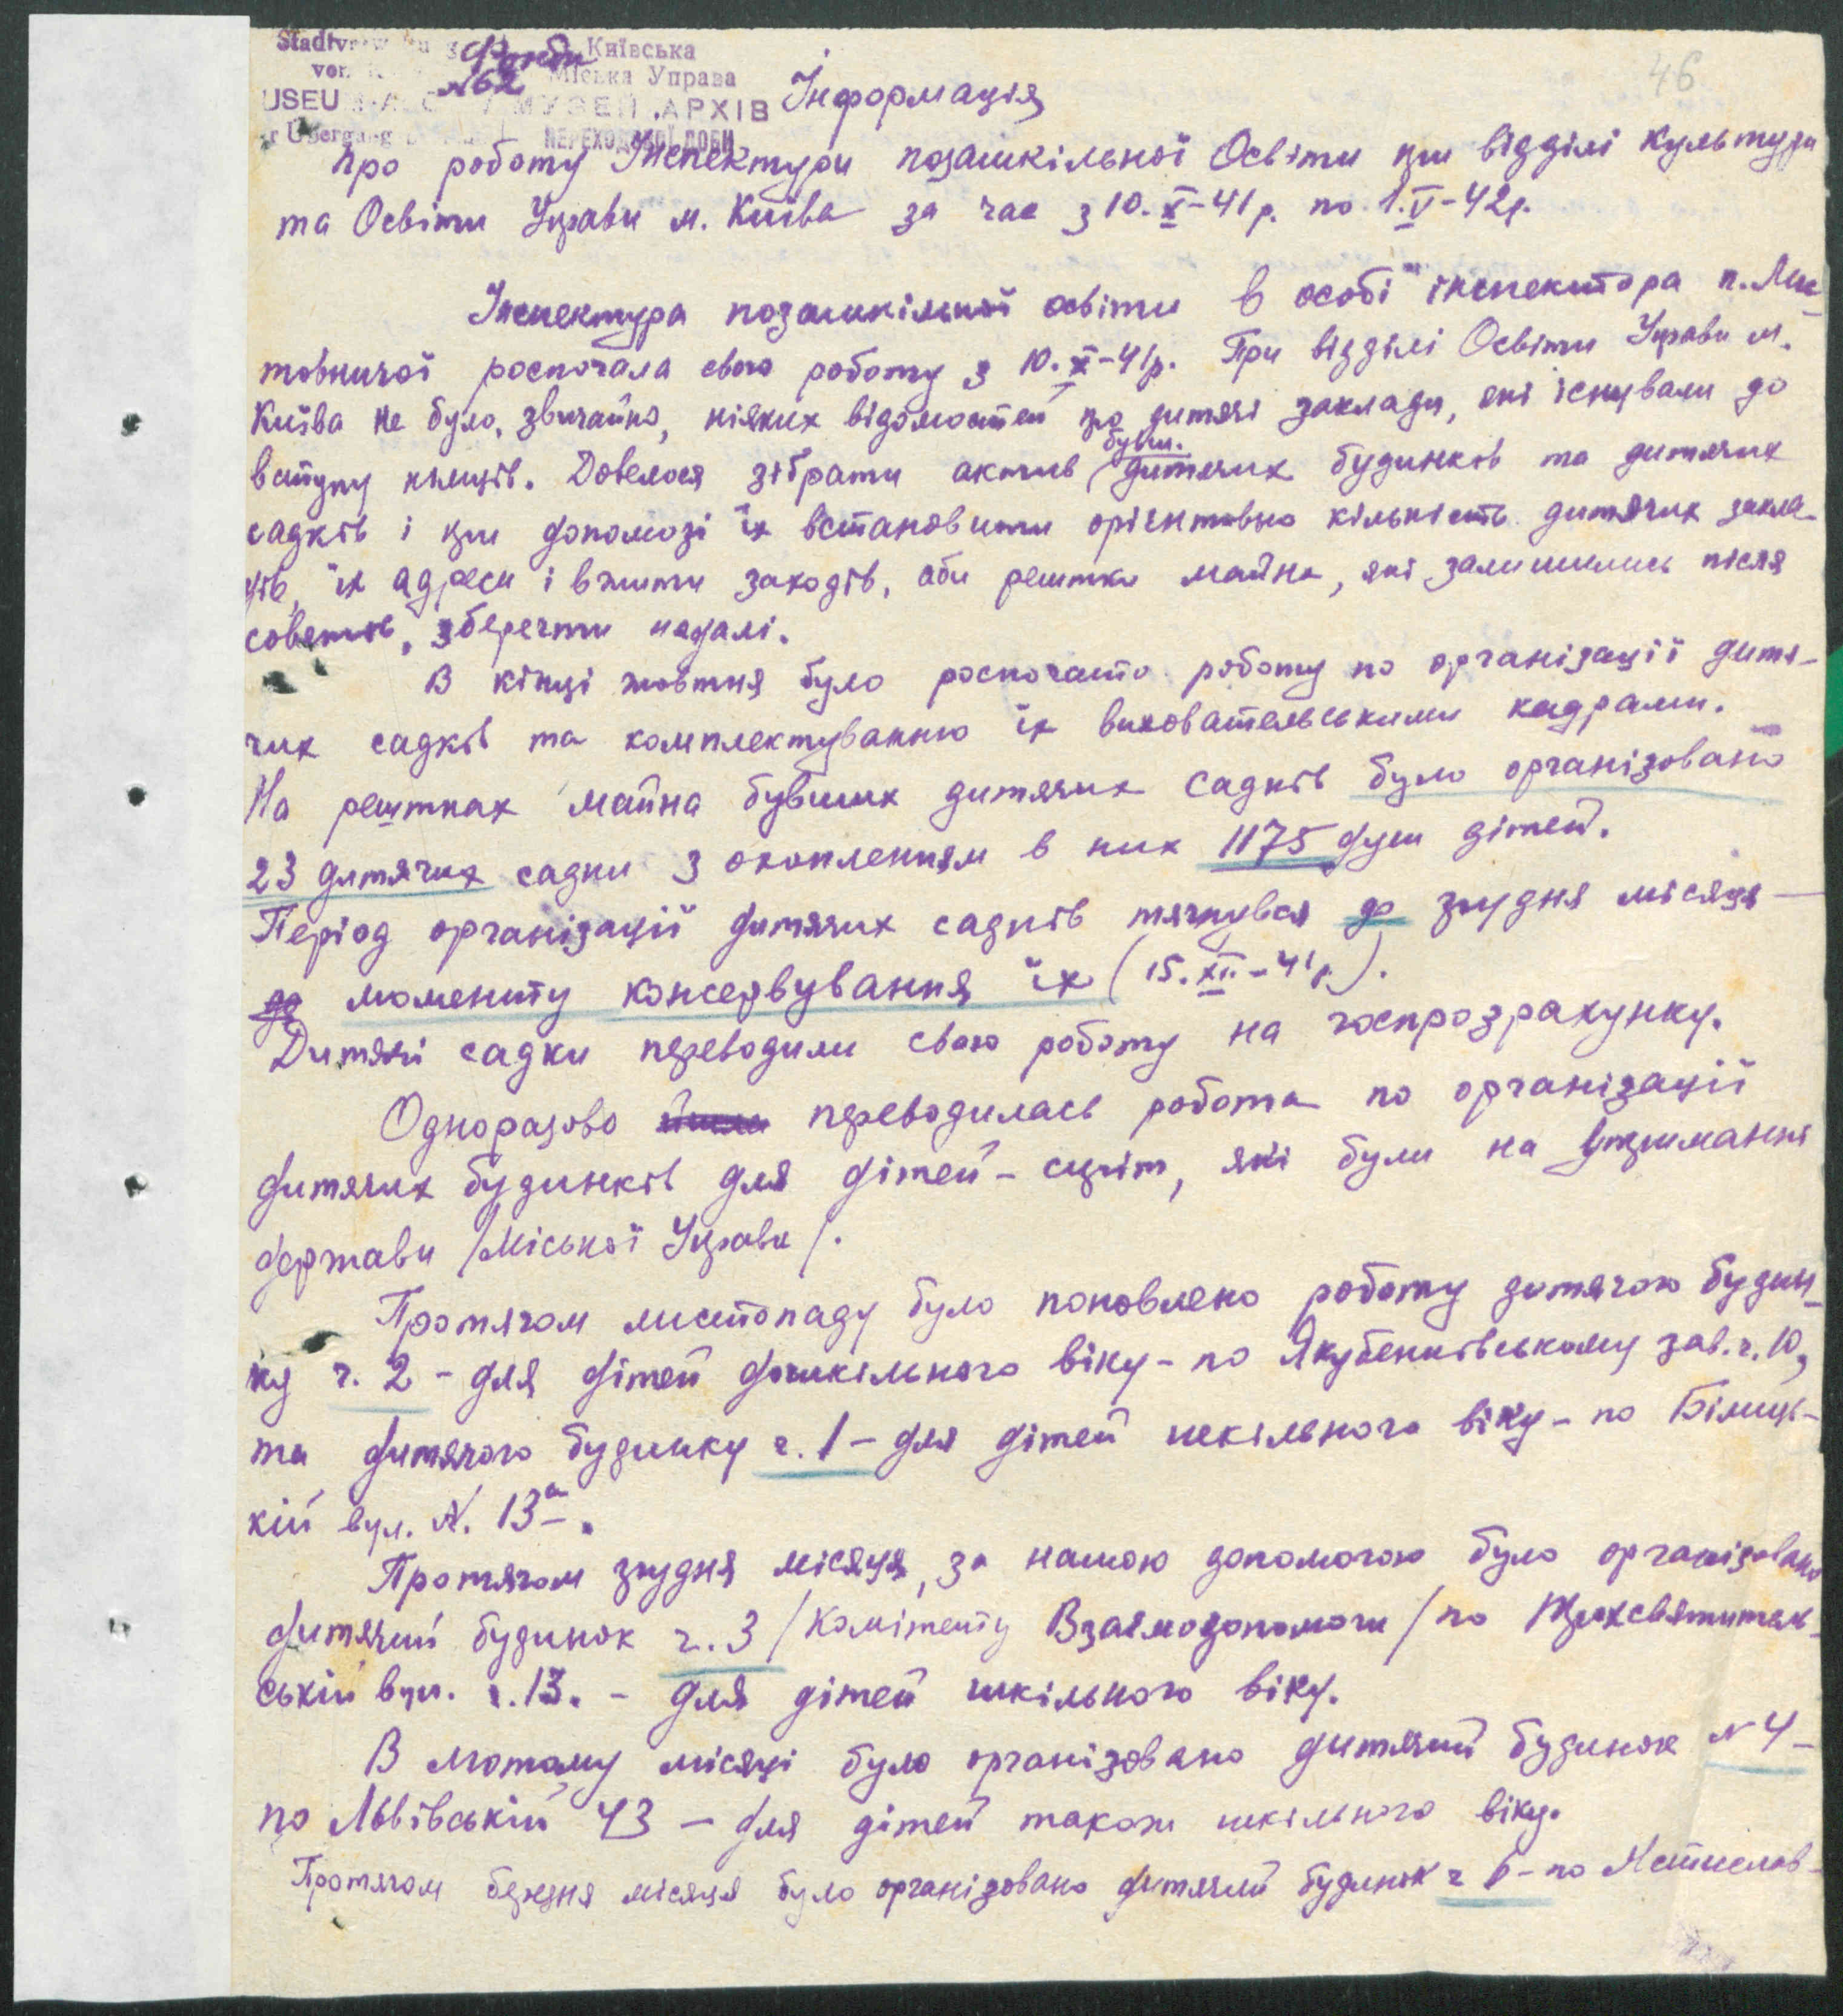 Stadtv Київська
von Міська Управа
Фонди
№62
USEU МУЗЕЙ-АРХІВ
r Übergang ПЕРЕХОДОВОЇ ДОБИ
46
Інформація
про роботу Інспектури позашкільної Освіти при відділі Культури
та Освіти Управи м. Київа за час з 10.X-41р. по 1.V-42р.
Інспектура позашкільної освіти в особі інспектора п. Ли-
товничої роспочала свою роботу з 10.X-41р. При відділі Освіти Управи м.
Київа не було, звичайно, ніяких відомостей про дитячі заклади, які існували до
вступу німців. Довелося зібрати актив бувш. дитячих будинків та дитячих
садків і при допомозі їх встановити орієнтовно кількість дитячих закла-
дів, їх адреси і вжити заходів, аби рештки майна, які залишились після
совєтів, зберегти надалі.
В кінці жовтня було роспочато роботу по організації дитя-
чих садків та комплектуванню їх виховательськими кадрами.
На рештках майна бувших дитячих садків було організовано
23 дитячих садки з охопленням в них 1175 душ дітей.
Період організації дитячих садків тягнувся до грудня місяця —
до моменту консервування їх (15.XII-41р.).
Дитячі садки переводили свою роботу на госпрозрахунку.
Одноразово переводилась робота по організації
дитячих будинків для дітей-сиріт, які були на утриманні
держави /Міської Управи/.
Протягом листопаду було поновлено роботу дитячого будин-
ку ч. 2 - для дітей дошкільного віку - по Якубенківському зав. ч. 10,
та дитячого будинку ч. 1 - для дітей шкільного віку - по Білиць-
кій вул. N. 13а.
Протягом грудня місяця, за нашою допомогою було організовано
дитячий будинок ч. 3 /Комітету Взаємодопомоги/ по Трьохсвятитель-
ській вул. ч. 13. - для дітей шкільного віку.
В лютому місяці було організовано дитячий будинок N 4 -
по Львівській 43 - для дітей також шкільного віку.
Протягом березня місяця було організовано дитячий будинок ч - по Мстислав-